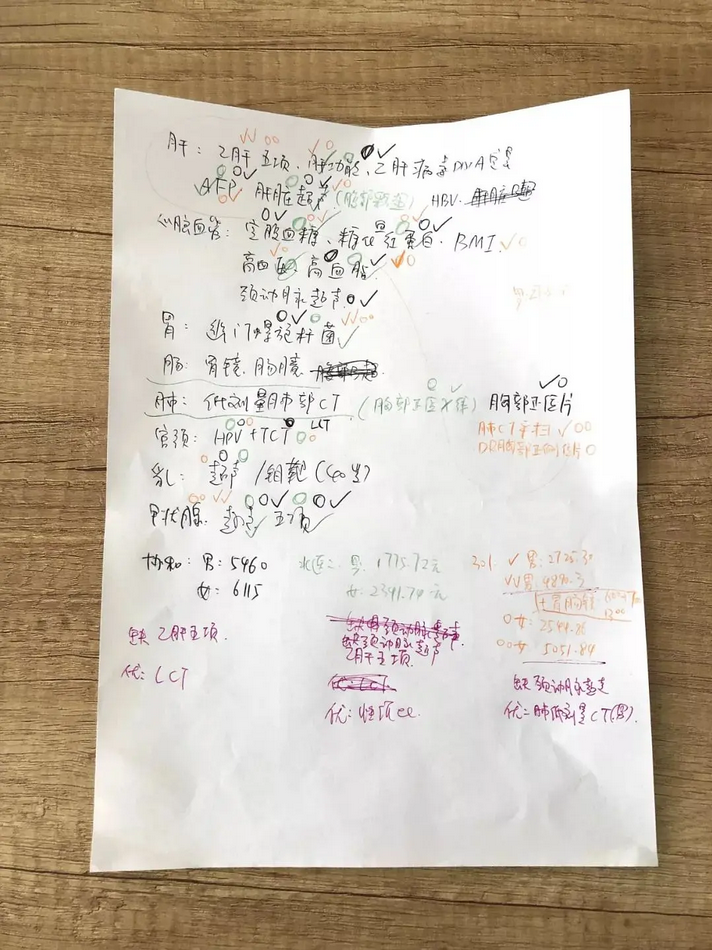 肝：乙肝五项、肝功能、乙肝病毒DNA定量
AFP 肝脏超声(腹部彩超) HBV.
心脑血管：空腹血糖、糖化血红蛋白、BMI
高血压 高血脂
颈动脉超声
胃：幽门螺旋杆菌
肠：胃镜、肠镜
肺：低剂量肺部CT (胸部正医X线) 胸部正位片
肺CT平扫
DR胸部正侧位片
宫颈：HPV+TCT LCT
乳：超声/钼靶(40岁)
甲状腺：超声 五项
协和：男：5460
女：6115
男：1775.72元
女：2341.74元
301 男：2725.30
男：9890.3
+胃肠镜
女：2544.26
女：5051.84
缺乙肝五项.
优：LCT
缺颈动脉超声
乙肝五项.
优：性项cc.
缺颈动脉超声
优：肺低剂量CT(男)